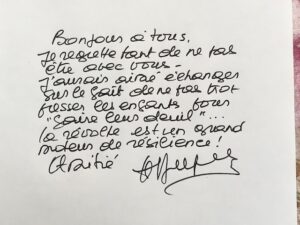 Bonjour à tous,
Je regrette tant de ne pas
être avec vous -
J'aurais aimé échanger
sur le fait de ne pas trop
presser les enfants pour
"faire leur deuil"...
la révolte est un grand
moteur de résilience !
Amitié